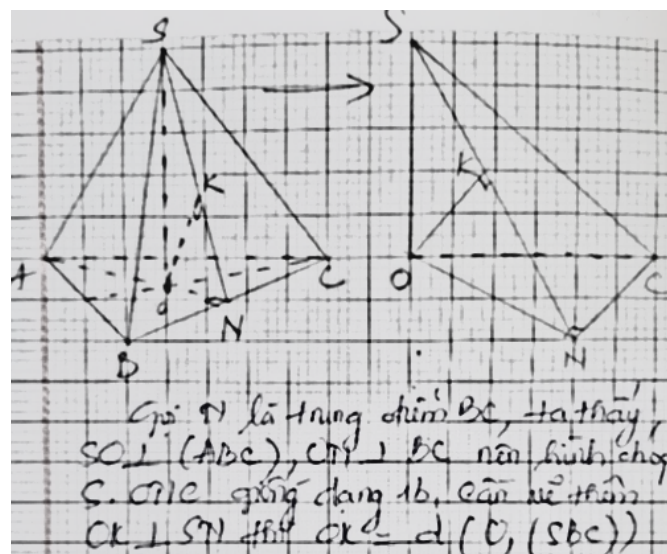 S S
K K
A O C O C
N N
B
Gọi N là trung điểm BC, ta thấy,
SO⊥ (ABC), ON ⊥ BC nên hình chóp
S.ONC giống dạng 1b, cần vẽ thêm
OK ⊥ SN thì OK = d(O, (SBC))